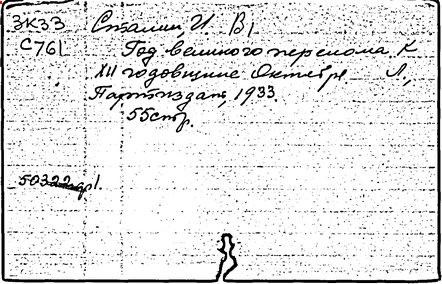 3К33 Сталин, И. В.
С76L Год великого перелома. К
XII годовщине Октября Л.,
Партиздат, 1933.
55стр.